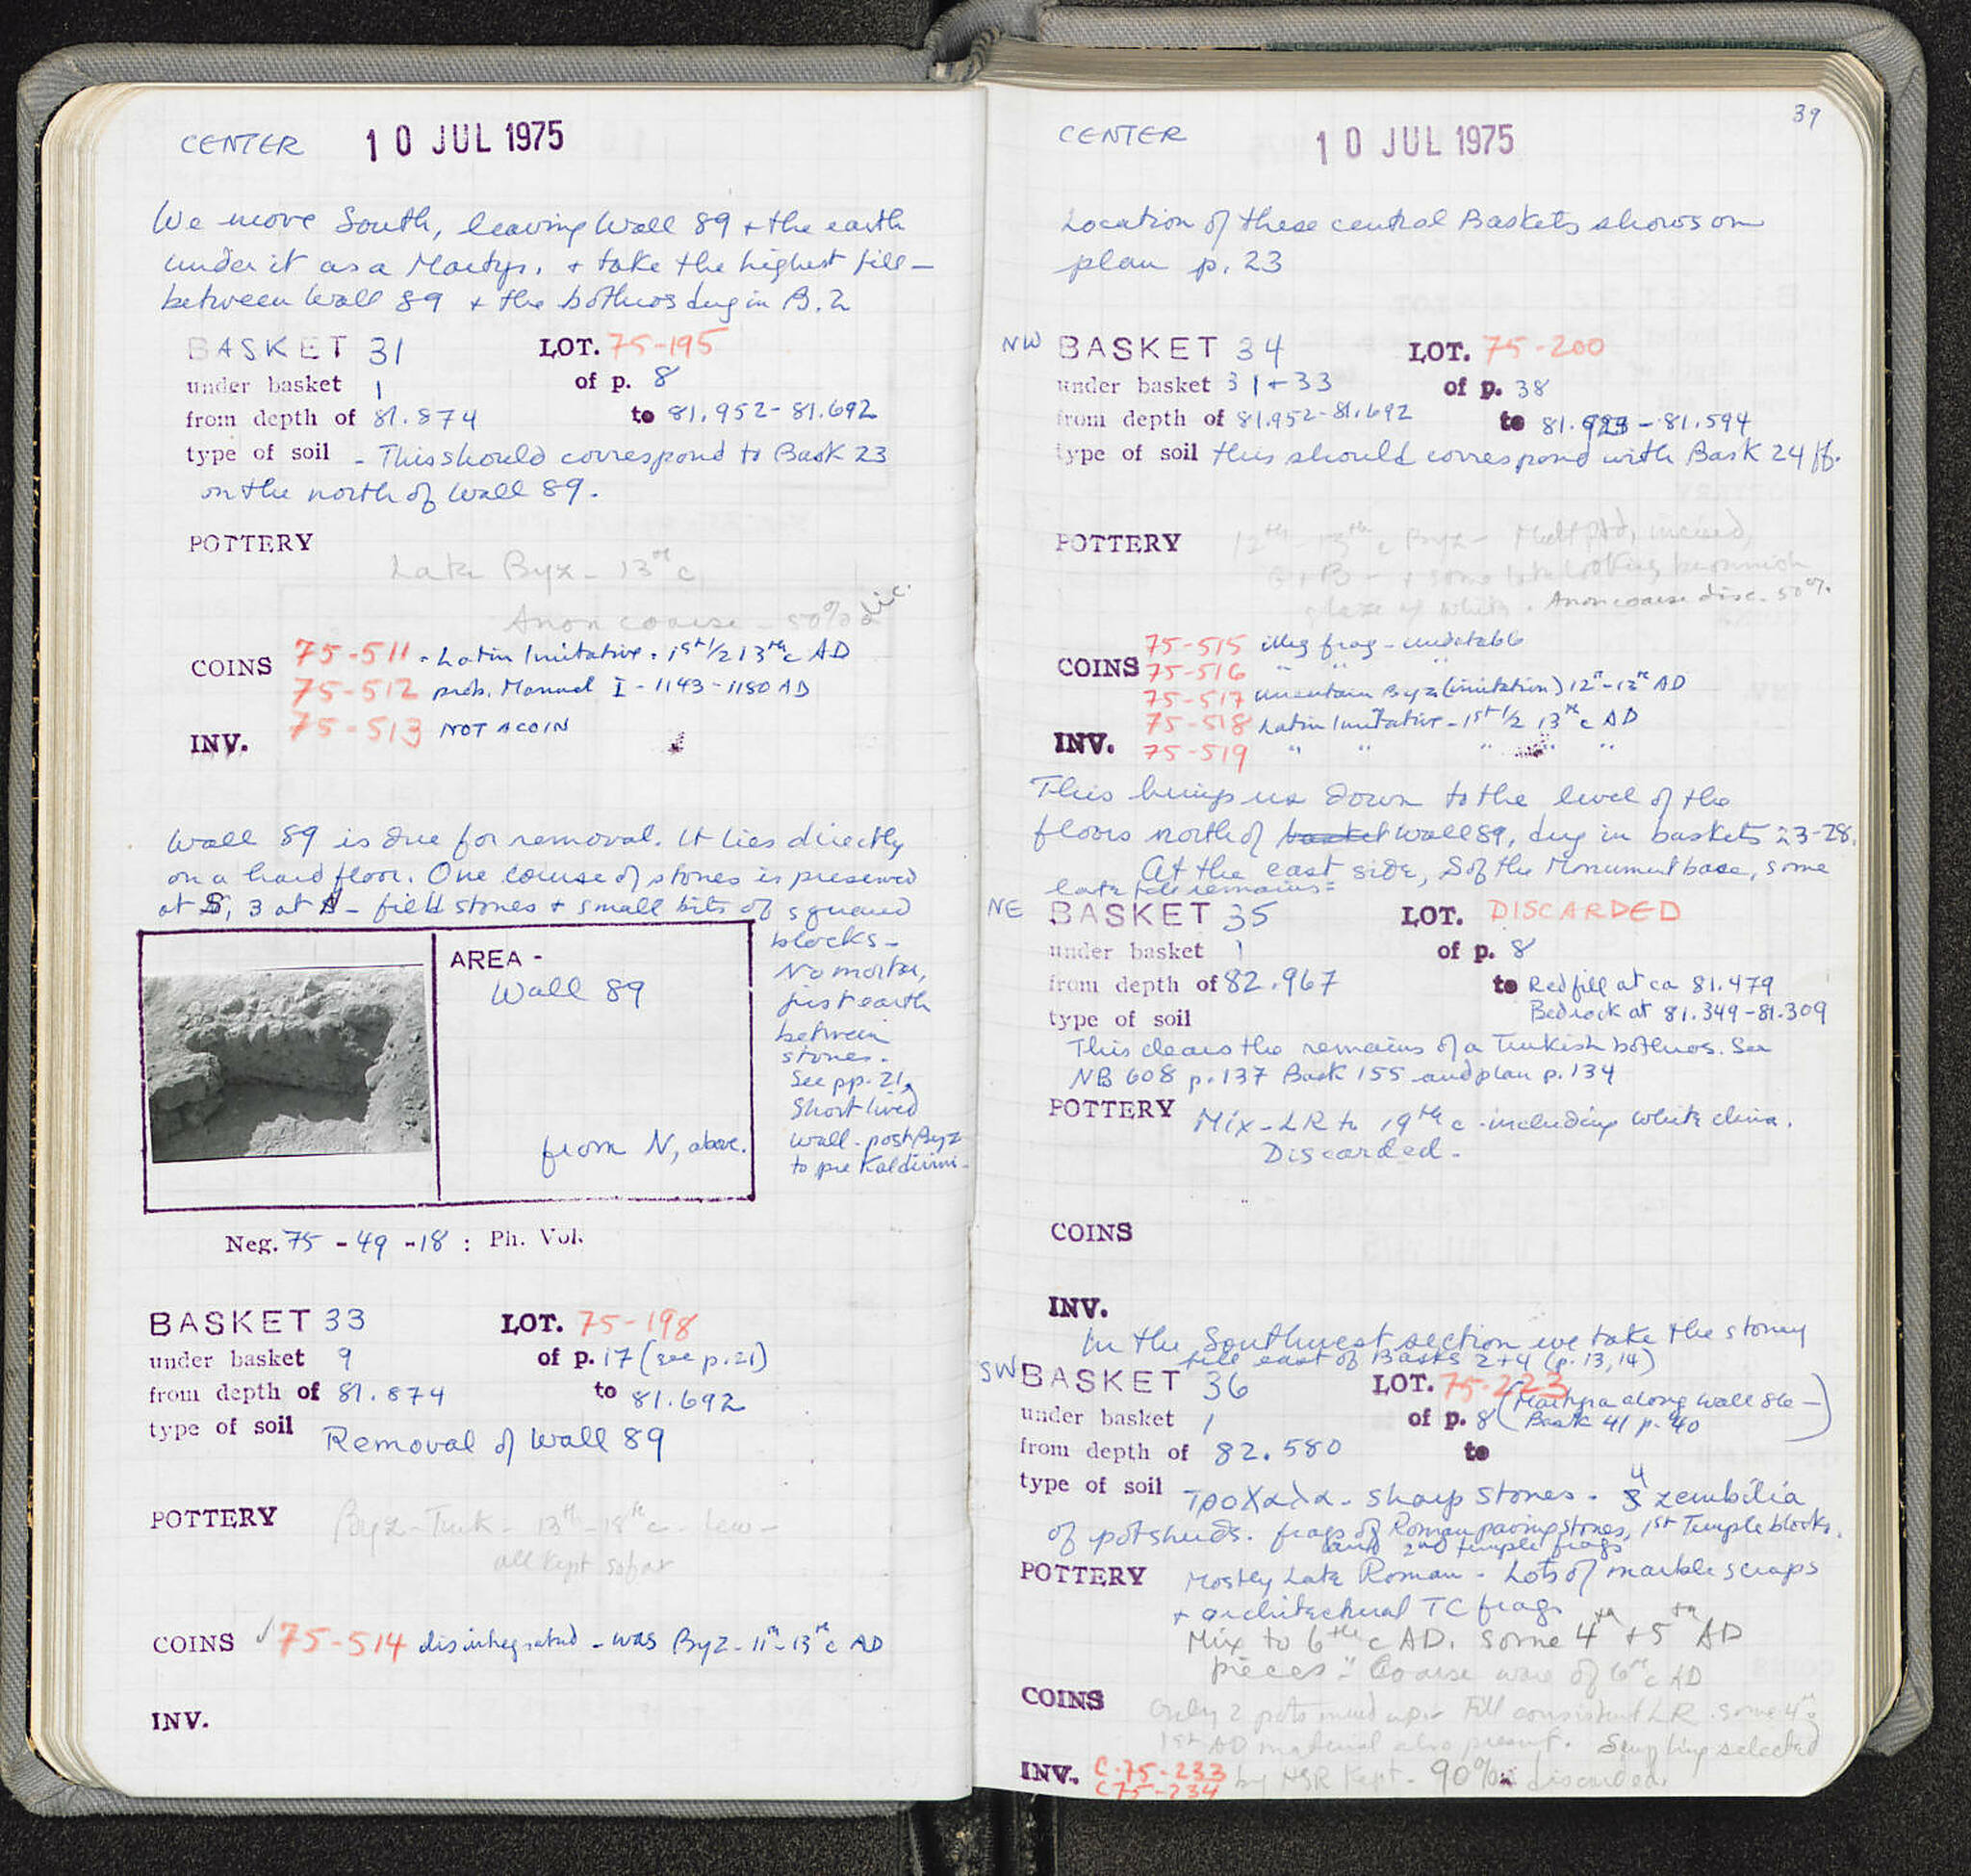 CENTER 10 JUL 1975
We move South, leaving Wall 89 + the earth
under it as a Martyr, + take the highest fill –
between Wall 89 + the bothros dug in B.2
BASKET 31 LOT. 75-195
under basket 1 of p. 8
from depth of 81.874 to 81.952-81.692
type of soil - This should correspond to Bask 23
on the north of Wall 89.
POTTERY
Late Byz - 13th c
Anon coarse - 50% disc.
COINS 75-511 - Latin Imitative - 1st 1/2 13th c AD
75-512 prob. Manuel I - 1143-1180 AD
75-513 NOT A COIN
INV.
Wall 89 is due for removal. It lies directly
on a hard floor. One course of stones is preserved
at S, 3 at – field stones + small bits of squared
blocks –
No mortar,
just earth
between
stones.
See pp. 21,
Short lived
wall - post Byz
to pre Kaldirimi -
AREA -
Wall 89
from N, above.
Neg. 75 - 49 - 18 : Ph. Vol.
BASKET 33 LOT. 75-198
under basket 9 of p. 17 (see p. 21)
from depth of 81.874 to 81.692
type of soil Removal of Wall 89
POTTERY Byz-Turk - 13th-18th c - few -
all kept sofar
COINS ✓ 75-514 disintegrated - was Byz - 11th-13th c AD
INV.
39
CENTER 10 JUL 1975
Location of these central Baskets shows on
plan p. 23
NW BASKET 34 LOT. 75-200
under basket 31+33 of p. 38
from depth of 81.952-81.692 to 81. - 81.594
type of soil this should correspond with Bask 24 ff.
POTTERY 12th-13th c Byz - incised,
+ some late looking brownish
glaze white. Anon coarse disc. 50%.
75-515 illeg frag - undatable
COINS 75-516 " " "
75-517 uncertain Byz (imitation) 12th-13th AD
75-518 Latin Imitative - 1st 1/2 13th c AD
INV. 75-519 " " " " "
This brings us down to the level of the
floors north of basket Wall 89, dug in baskets 23-28.
At the east side, S of the Monument base, some
late fill remains =
NE BASKET 35 LOT. DISCARDED
under basket 1 of p. 8
from depth of 82.967 to Red fill at ca 81.479
type of soil Bedrock at 81.349-81.309
This clears the remains of a Turkish bothros. See
NB 608 p. 137 Bask 155 and plan p. 134
POTTERY Mix - LR to 19th c - including white china.
Discarded -
COINS
INV.
In the Southwest section we take the stoney
fill east of Basks 2+4 (p. 13, 14)
SW BASKET 36 LOT. 75-223
under basket 1 of p. 8 (Martyra along Wall 86 – Bask 41 p. 40)
from depth of 82.580 to
type of soil Τροχαλα - sharp stones - 4 zembilia
of potsherds. frags of Roman paving stones, 1st Temple blocks,
and 2nd temple frags
POTTERY Mostly Late Roman - Lots of marble scraps
+ architectural TC frags
Mix to 6th c AD. Some 4th + 5th AD
pieces - Coarse ware of 6th c AD
COINS Only 2 pots mend up. Fill consistent LR. some 4th
1st AD material also present. Sampling selected
INV. C-75-233 by kept - 90% discarded.
C-75-234